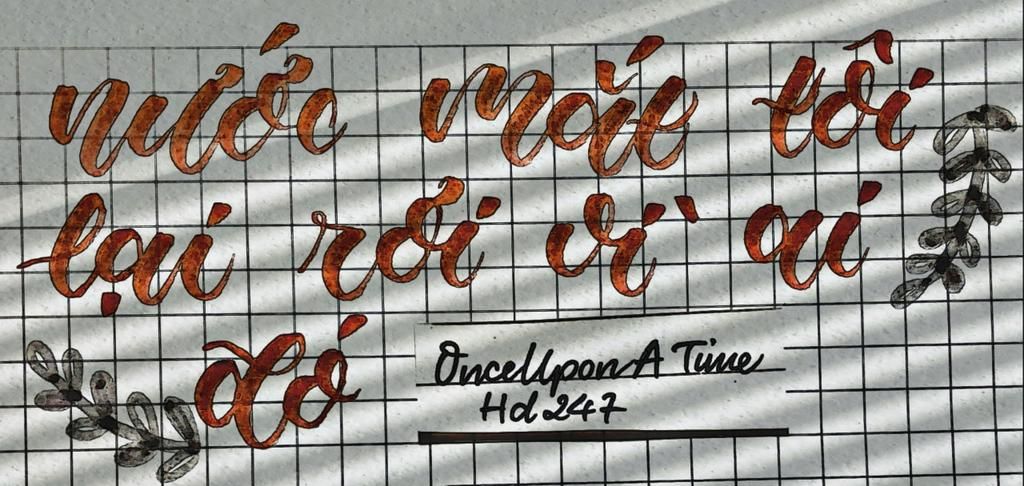 nước mắt tôi
lại rơi vì ai
đó
OnceUponA Time
Hd247